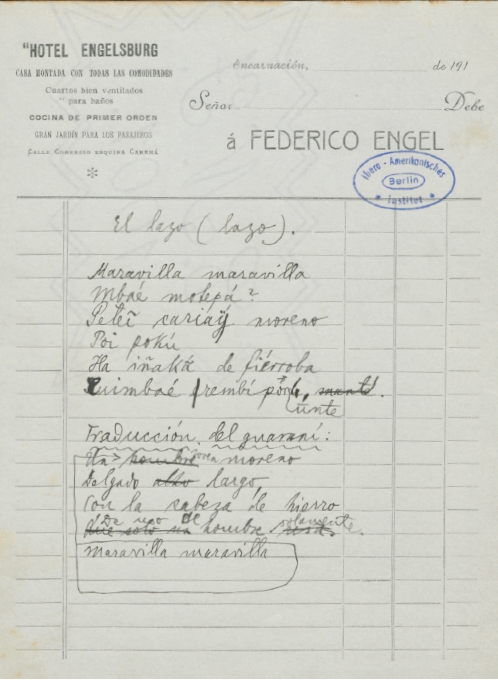 "HOTEL ENGELSBURG
CASA MONTADA CON TODAS LAS COMODIDADES
Cuartos bien ventilados
" para baños
COCINA DE PRIMER ORDEN
GRAN JARDÍN PARA LOS PASAJEROS
CALLE COMERCIO ESQUINA
Encarnación, de 191
Señor Debe
á FEDERICO ENGEL
Ibero-Amerikanisches
Berlin
Institut
El lazo (lazo).
Maravilla maravilla
Mbaé motepá?
Peteĩ cariaÿ moreno
Poi pokú
Ha iñaká de fiérroba
Cuimbaé rembí
unte
Traducción del guaraní:
Un joven moreno
Delgado alto largo,
Con la cabeza de hierro
De uso de hombre solamente.
Maravilla maravilla